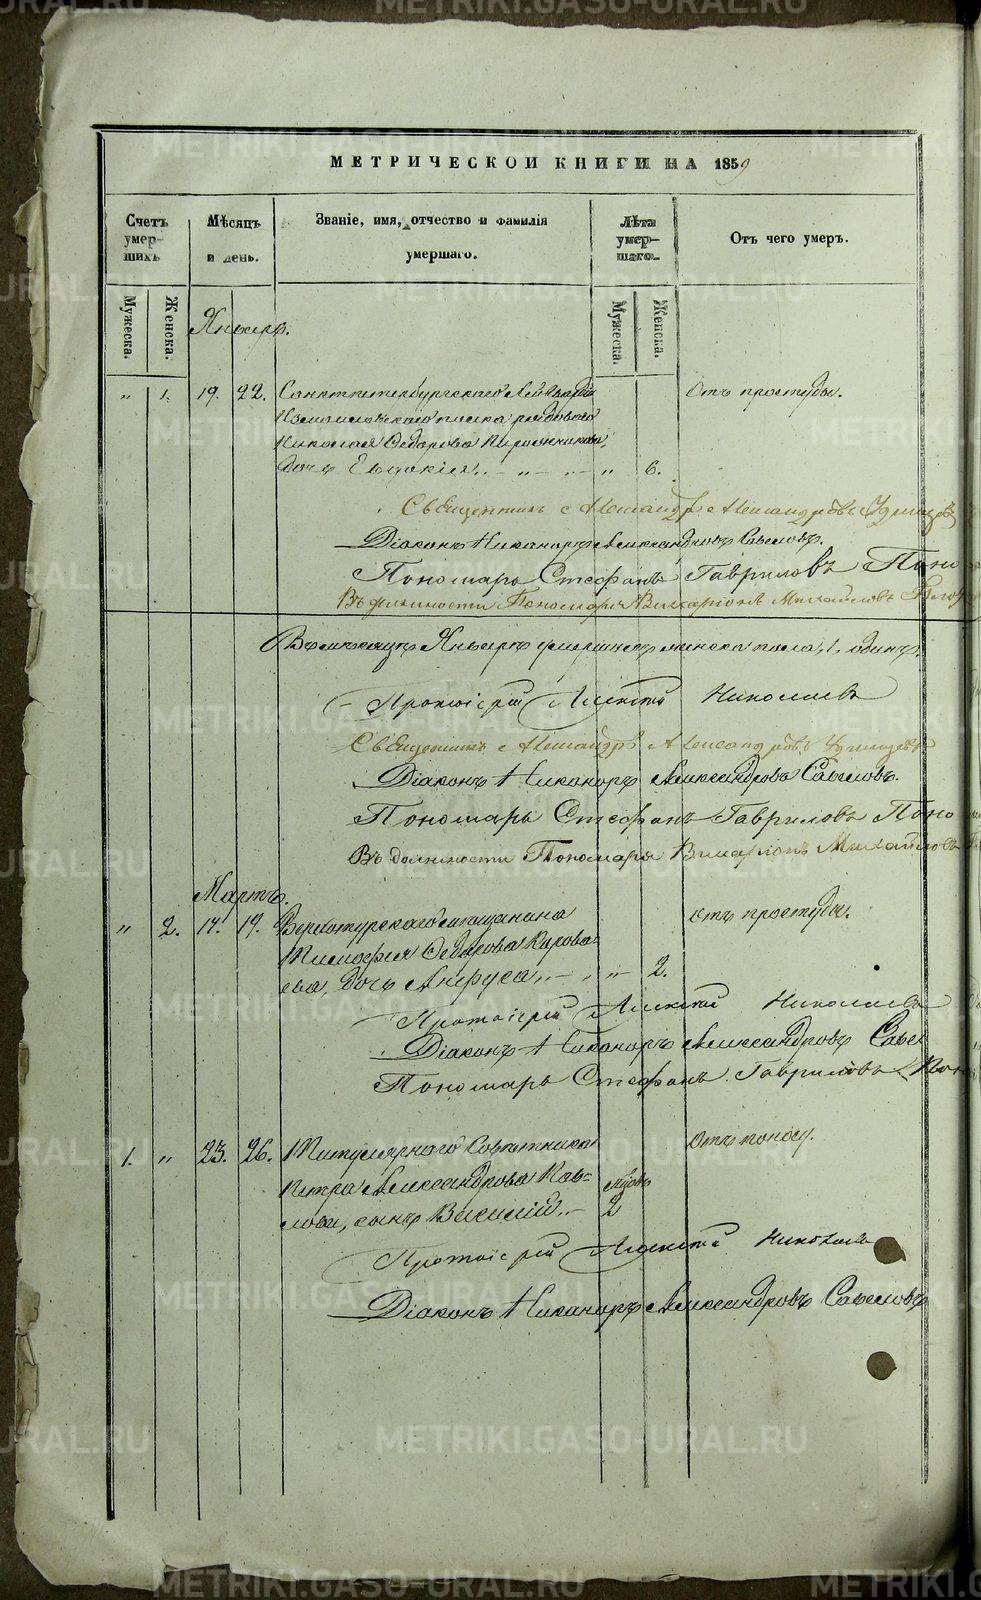 МЕТРИЧЕСКОЙ КНИГИ НА 1859
Счетъ умер-шихъ
Мѣсяцъ и день.
Званіе, имя, отчество и фамилія умершаго.
Лѣта умер-шаго.
Отъ чего умеръ.
Мужеска.
Женска.
Мужеска.
Женска.
Январь.
" 1. 19. 22. Санктпетербургскаго Лейбгвардіи Отъ простуды.
Измайловскаго полка рядоваго
Николая Ѳедорова
дочь Евдокія " 6.
Священникъ Александръ Александровъ
Діаконъ Никаноръ Александровъ
Пономарь Стефанъ Гавриловъ Поно
Въ должности Пономаря Иларіонъ Михайловъ
Въ мѣсяцѣ Январѣ умершихъ женска пола, 1, одинъ.
Протоіерей Алексѣй Николаевъ
Священникъ Александръ Александровъ
Діаконъ Никаноръ Александровъ
Пономарь Стефанъ Гавриловъ Поно
Въ должности Пономаря Иларіонъ Михайловъ
Мартъ.
" 2. 17. 19. Верхотурскаго мѣщанина Отъ простуды.
Тимофея Ѳедорова
ева, дочь Анфуса " 2.
Протоіерей Алексѣй Николаевъ
Діаконъ Никаноръ Александровъ
Пономарь Стефанъ Гавриловъ
1. " 23. 26. Титулярнаго Совѣтника Отъ поносу.
Петра Александрова Коз-
лова, сынъ Василій 2
Протоіерей Алексѣй Николаевъ
Діаконъ Никаноръ Александровъ
METRIKI.GASO-URAL.RU